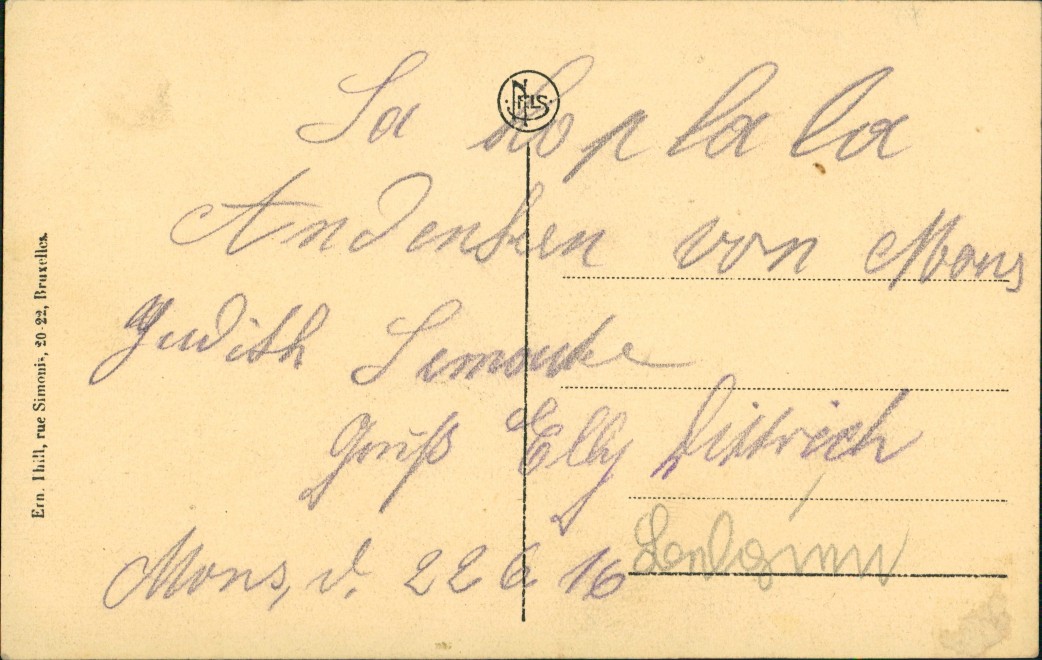 Sa hopla la
NELS
Andenken von Mons
Judith
Gruß Elly Dittrich
Mons, d. 22 6 16
Ern. Thill, rue Simonis, 20-22, Bruxelles.